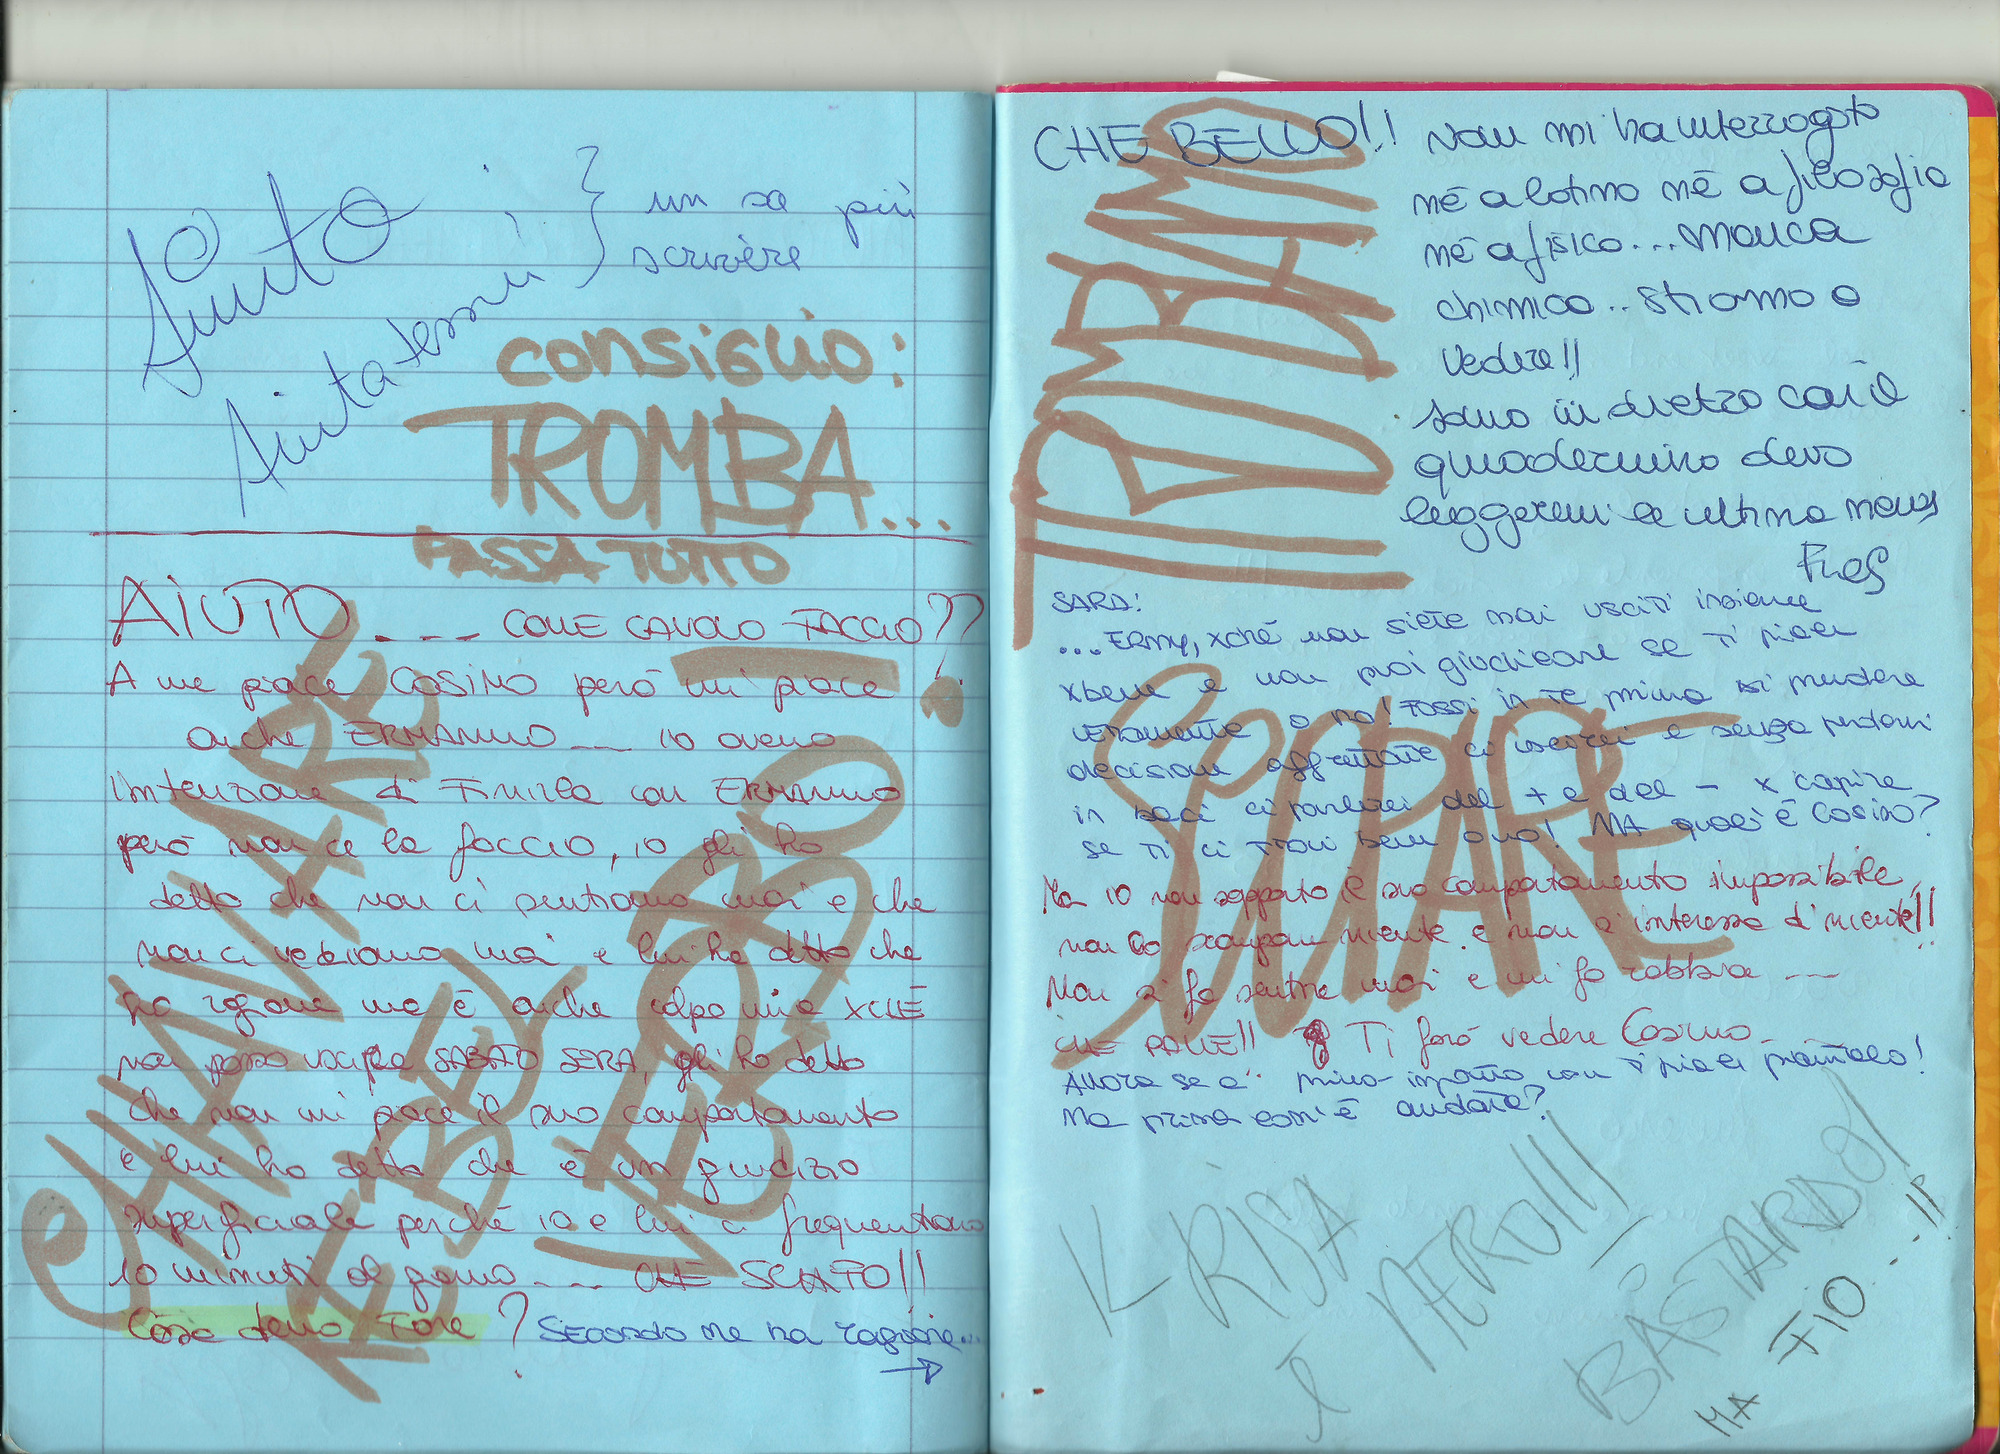 Aiuto
Aiutatemi
un sa più
scrivere
consiglio:
TROMBA...
PASSA TUTTO
AIUTO.--- COME CAVOLO FACCIO??
A me piace COSIMO però mi piace
anche ERMANNO --- IO avevo
l'intenzione di finirla con ERMANNO
però non ce la faccio, io gli ho
detto che non ci sentiamo mai e che
non ci vediamo mai e lui ha detto che
ho ragione ma è anche colpa mia XCHÈ
non posso uscire SABATO SERA, gli ho detto
che non mi piace il suo comportamento
e lui ha detto che è un giudizio
superficiale perché io e lui ci frequentiamo
10 minuti al giorno --- CHE SCHIFO!!
Cosa devo fare? Secondo me ha ragione...
CHIAVARE
VERBO
CHE BELLO!! Non mi ha interrogato
né a latino né a filosofia
né a fisica... manca
chimica.. stiamo a
vedere!!
sono indietro con il
quadernino devo
leggermi le ultime news
TROMBAMO
SARA:
...ERMY, xché non siete mai usciti insieme
xbene e non puoi giudicare se ti piace
veramente o no! FOSSI in te prima di prendere
decisioni affrettate ci uscirei e senza perdermi
in baci ci parlerei del + e del - x capire
se ti ci trovi bene o no! MA quale è Cosimo?
SCOPARE
Ma io non sopporto il suo comportamento impossibile,
non lo scompone niente e non si interessa di niente!!
Non si fa sentire mai e mi fa rabbia ---
CHE PALLE!! Ti farò vedere Cosimo
Allora se a primo impatto non ti piace piantalo!
Ma prima com'è andata?
KRISA
È NERO!!!
BASTARDO!
MA FIO...!!